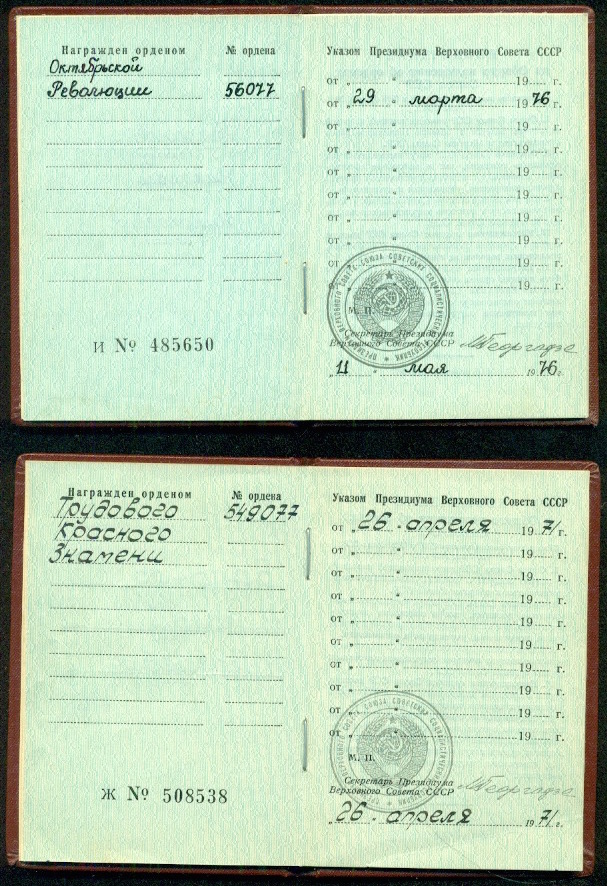 Награжден орденом № ордена
Октябрьской
Революции 56077
И № 485650
Указом Президиума Верховного Совета СССР
от „ “ 19 г.
от „29 “ марта 1976 г.
от „ “ 19 г.
от „ “ 19 г.
от „ “ 19 г.
от „ “ 19 г.
от „ “ 19 г.
от „ “ 19 г.
от „ “ 19 г.
от „ “ 19 г.
М. П.
Секретарь Президиума
Верховного Совета СССР МГеоргадзе
„11 “ мая 1976 г.
Награжден орденом № ордена
Трудового 549077
Красного
Знамени
Ж № 508538
Указом Президиума Верховного Совета СССР
от „26 “ апреля 1971 г.
от „ “ 19 г.
от „ “ 19 г.
от „ “ 19 г.
от „ “ 19 г.
от „ “ 19 г.
от „ “ 19 г.
от „ “ 19 г.
от „ “ 19 г.
от „ “ 19 г.
М. П.
Секретарь Президиума
Верховного Совета СССР МГеоргадзе
„26 “ апреля 1971 г.